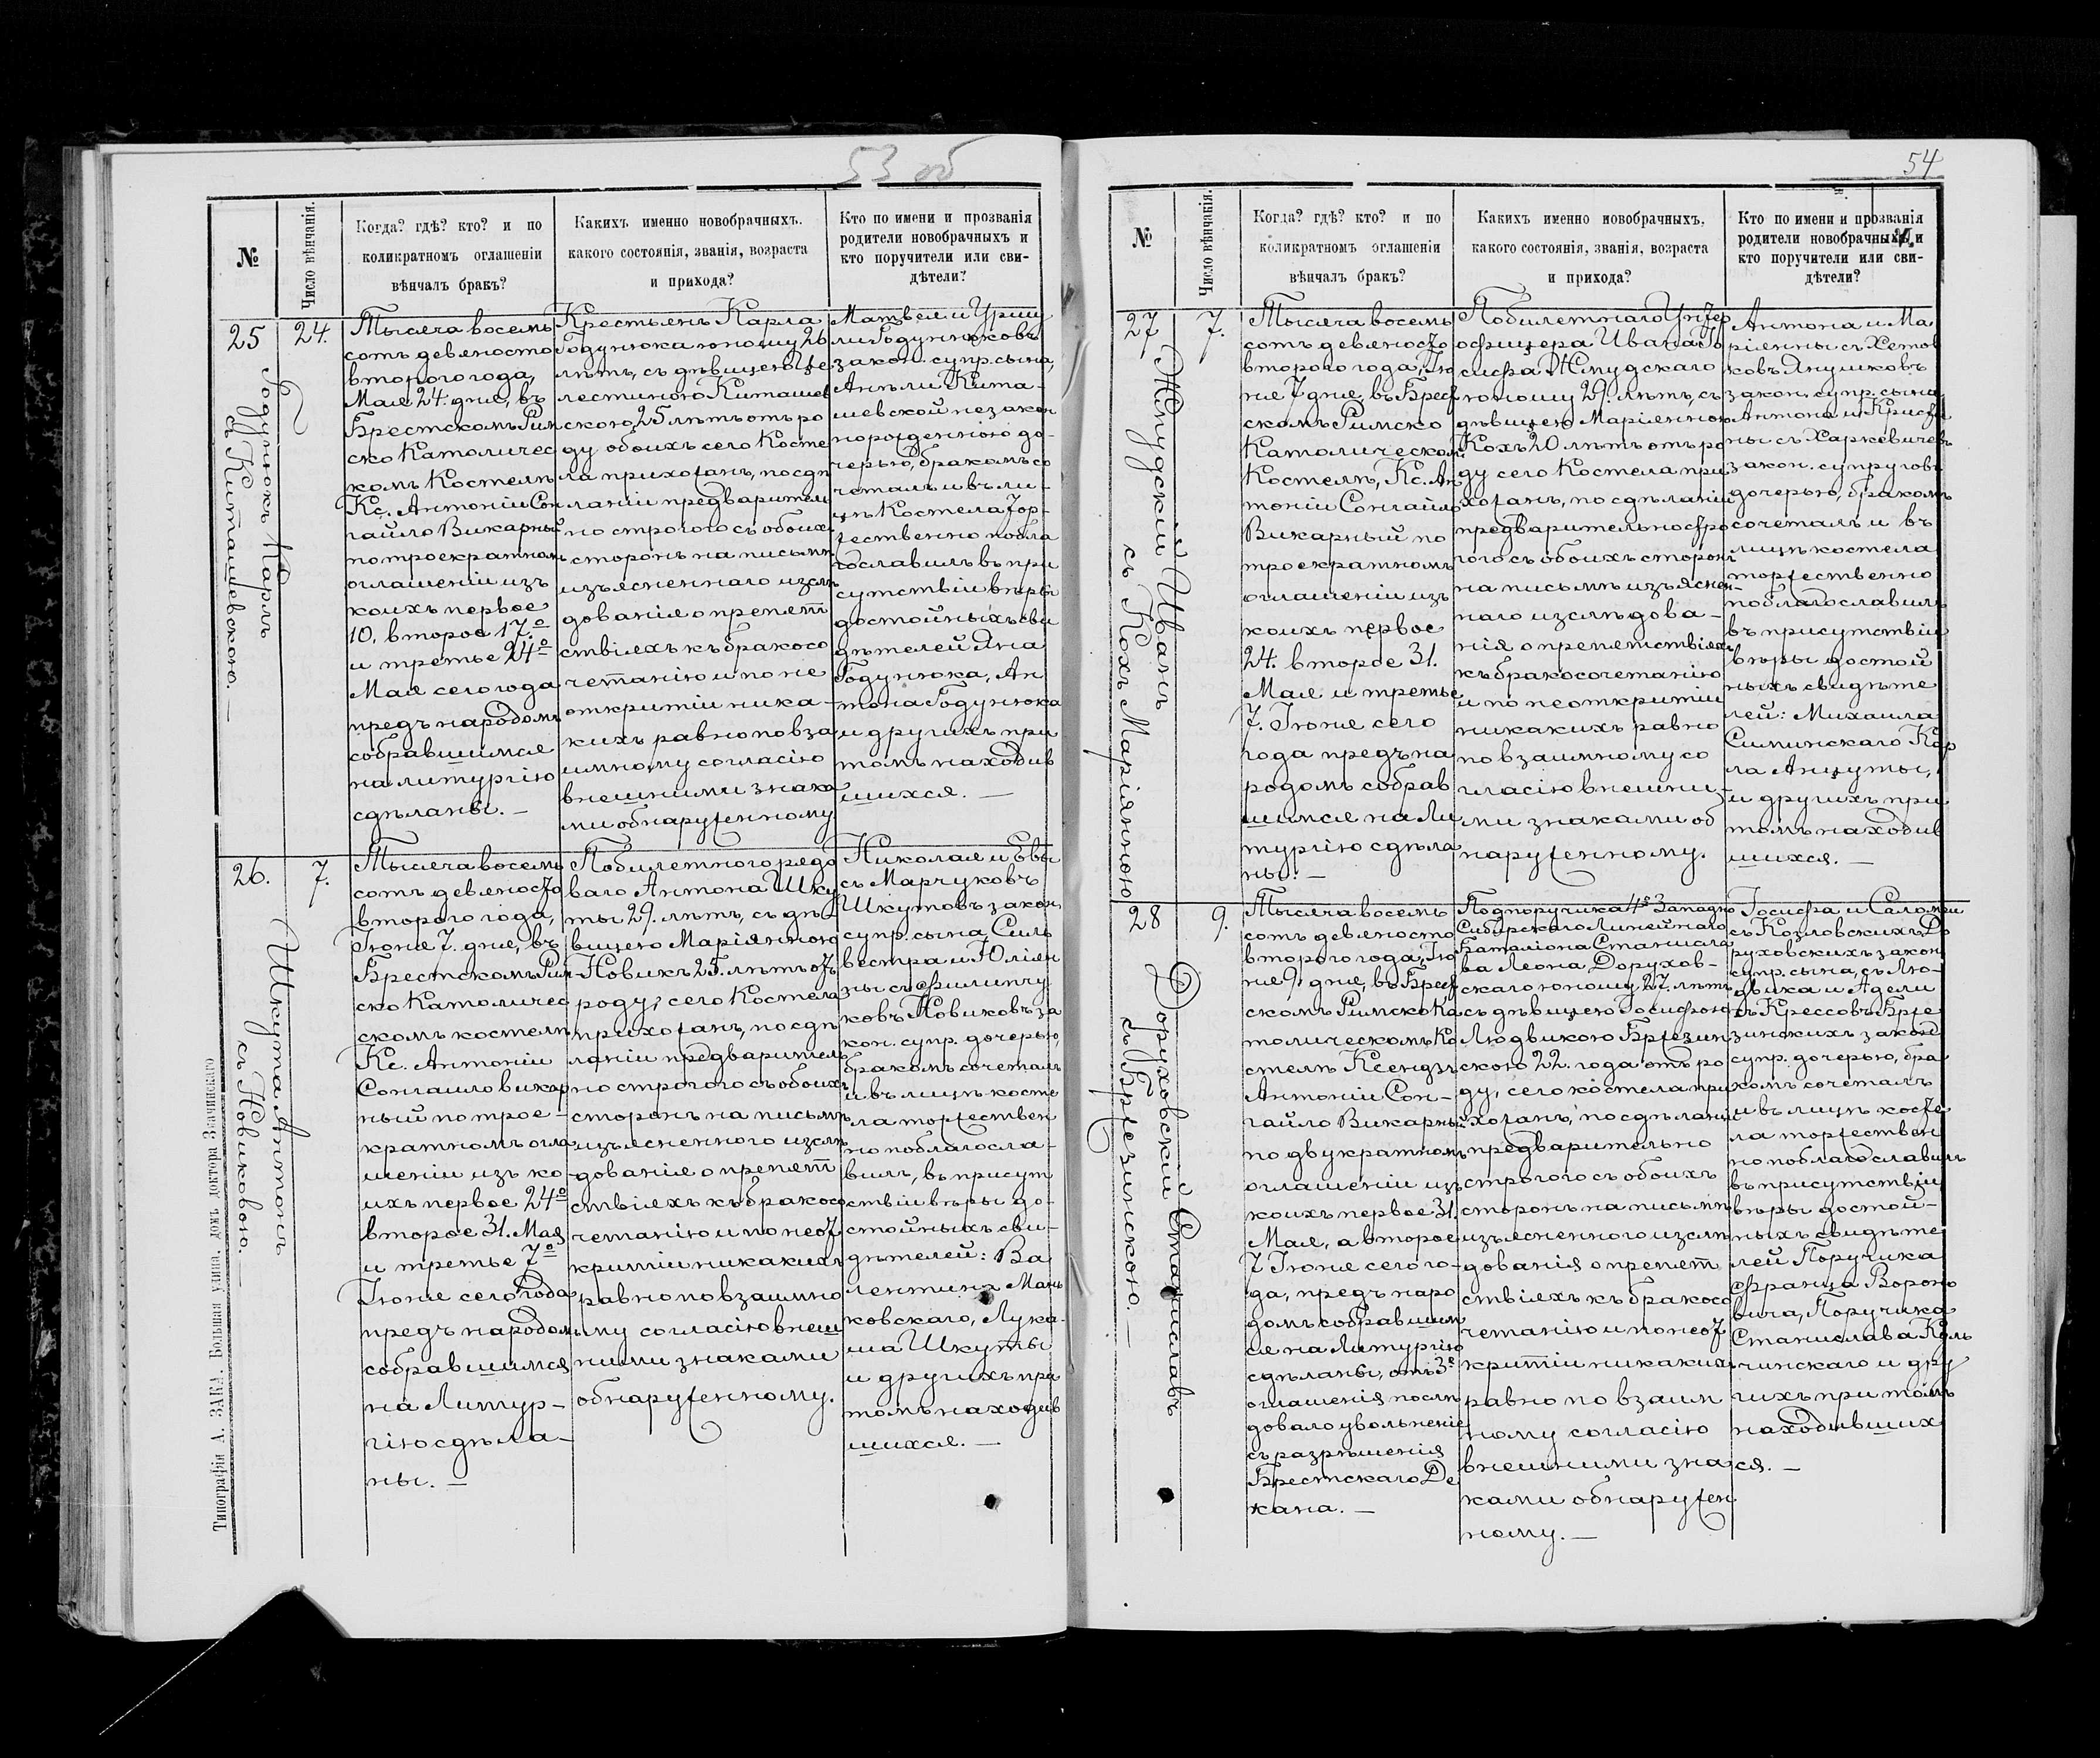 53 об
№
Число вѣнчанія.
Когда? гдѣ? кто? и по
коликратномъ оглашеніи
вѣнчалъ бракъ?
Какихъ именно новобрачныхъ.
какого состоянія, званія, возраста
и прихода?
Кто по имени и прозванія
родители новобрачныхъ и
кто поручители или сви-
дѣтели?
25
Годунюкъ Карлъ
съ Киташевскою. —
24.
Тысяча восемь
сотъ девяносто
второго года,
Мая 24. дня, въ
Брестскомъ Рим
ско Католичес
комъ Костелѣ
Кс. Антоній Сон
гайло Викарный
по троекратномъ
оглашеніи изъ
коихъ первое
10. второе 17.º
и третье 24º
Мая сего года
предъ народомъ
собравшимся
на литургію
сдѣланы. —
Крестьянъ Карла
Годунюка юношу 26
лѣтъ, съ дѣвицею Це
лестиною Киташев
скою 25 лѣтъ отъ ро
ду обоихъ сего Косте
ла прихожанъ, по сдѣ
ланіи предваритель
но строгого съ обоихъ
сторонъ на письмѣ
изъясненнаго изслѣ
дованія о препят
ствіяхъ къ бракосо
четанію и по не
открытіи ника-
кихъ равно по вза
имному согласію
внешними знака
ми обнаруженному
Матвея и Урш
ли Годунюковъ
закон. супр. сына,
Анели Кита-
шевской незакон
норожденною до-
черью, бракомъ со
четалъ и въ ли-
цѣ Костела тор-
жественно побла
гославилъ въ при
сутствіи вѣры
достойныхъ сви
дѣтелей Яна
Годунюка, Ан
тона Годунюка
и другихъ при
томъ находив
шихся. —
26.
Шкута Антонъ
съ Новиковою. —
7.
Тысяча восемь
сотъ девяносто
второго года,
Іюня 7. дня, въ
Брестскомъ Рим
ско Католичес
скомъ костелѣ
Кс. Антоній
Сонгаило викар
ный по трое-
кратномъ огла
шеніи изъ ко
ихъ первое 24º
второе 31. Мая
и третье 7º
Іюня сего года
предъ народомъ
собравшимся
на Литур-
гію сдѣла-
ны. —
Побилетного рядо
ваго Антона Шку
ты 29. лѣтъ, съ дѣ
вицею Маріянною
Новикъ 25. лѣтъ отъ
роду, сего Костела
прихожанъ, по сдѣ
ланіи предваритель
но строгого съ обоихъ
сторонъ на письмѣ
изъясненного изслѣ
дованія о препят
ствіяхъ къ бракосо
четанію и по неот
крытіи никакихъ
равно по взаимно
му согласію внеш
ними знаками
обнаруженному.
Николая и Евы
съ Марчуковъ
Шкутовъ закон,
супр. сына, Силь
вестра и Юліян
ны съ Филипчу
ковъ Новиковъ за
кон. супр. дочерью,
бракомъ сочеталъ
и въ лицѣ косте
ла торжествен
но поблагосла-
вилъ, въ присут
ствіи вѣры до-
стойныхъ сви-
дѣтелей: Ва
лентина Мань
ковскаго, Лука-
ша Шкуты
и другихъ при
томъ находив
шихся. —
Типографія А. ЗАКА. Большая улица, домъ доктора Значинскаго
54
№
Число вѣнчанія.
Когда? гдѣ? кто? и по
коликратномъ оглашеніи
вѣнчалъ бракъ?
Какихъ именно новобрачныхъ,
какого состоянія, званія, возраста
и прихода?
Кто по имени и прозванія
родители новобрачныхъ и
кто поручители или сви-
дѣтели?
27
Жмудскій Иванъ
съ Кохъ Маріянною
7.
Тысяча восемь
сотъ девяносто
второго года, Ію
ня 7 дня, въ Брест
скомъ Римско
Католическомъ
Костелѣ, Кс. Ан
тоній Сонгайло
Викарный по
троекратномъ
оглашеніи изъ
коихъ первое
24. второе 31.
Мая и третье
7. Іюня сего
года предъ на
родомъ собрав
шимся на Ли
тургію сдѣла
ны. —
Побилетнаго Унтер
офицера Ивана Іо
сифа Жмудскаго
юношу 29. лѣтъ, съ
дѣвицею Маріянною
Кохъ 20 лѣтъ отъ ро
ду сего Костела при
хожанъ, по сдѣланіи
предварительно стро
гого съ обоихъ сторонъ
на письмѣ изъяснен-
наго изслѣдова-
нія о препятствіяхъ
къ бракосочетанію
и по неоткрытіи
никакихъ равно
по взаимному со
гласію внешни-
ми знаками об
наруженному.
Антона и Ма
ріянны съ
закон. супр. сына
Антона и Кристи
ны съ Харкевичевъ
закон. супруговъ
дочерью, бракомъ
сочеталъ и въ
лицѣ костела
торжественно
поблагославилъ
въ присутствіи
вѣры достой
ныхъ свидѣте
лей: Михаила
Симинскаго Кар
ла Анцуты,
и другихъ при
томъ находив
шихся. —
28
Доруховскій Станиславъ
съ Бржезинскою. —
9.
Тысяча восемь
сотъ девяносто
второго года, Ію
ня 9, дня, въ Брест
скомъ Римско Ка
толическомъ Ко
стелѣ Ксендзъ
Антоній Сон-
гайло Викарный
по двукратномъ
оглашеніи изъ
коихъ первое 31.
Мая, а второе
7 Іюня сего го-
да, предъ наро
домъ собравшим
ся на Литургію
сдѣланы, отъ 3º
оглашенія послѣ
довало увольненіе
съ разрѣшенія
Брестскаго Де
кана. —
Подпоручика 4º Западно
Сибирскаго Линейнаго
Баталіона Станисла
ва Леона Дорухов-
скаго юношу 27. лѣтъ
съ дѣвицею Іосифою
Людвикою Бржезин
скою 22. года отъ ро
ду, сего костела при
хожанъ, по сдѣланіи
предварительно
строгого съ обоихъ
сторонъ на письмѣ
изъясненного изслѣ
дованія о препят
ствіяхъ къ бракосо
четанію и по неот
крытіи никакихъ
равно по взаим
ному согласію
внешними зна
ками обнаружен
ному. —
Іосифа и Саломеи
съ Козловскихъ До
руховскихъ закон.
супр. сына, съ Лю-
двика и Адели
съ Крессовъ Брже
зинскихъ закон.
супр. дочерью, бра
комъ сочеталъ
и въ лицѣ косте
ла торжествен
но поблагославилъ
въ присутствіи
вѣры достой-
ныхъ свидѣте
лей Поручика
Франца Вороно
вича, Поручика
Станислава Куль
чинскаго и дру
гихъ при томъ
находившихъ
ся. —